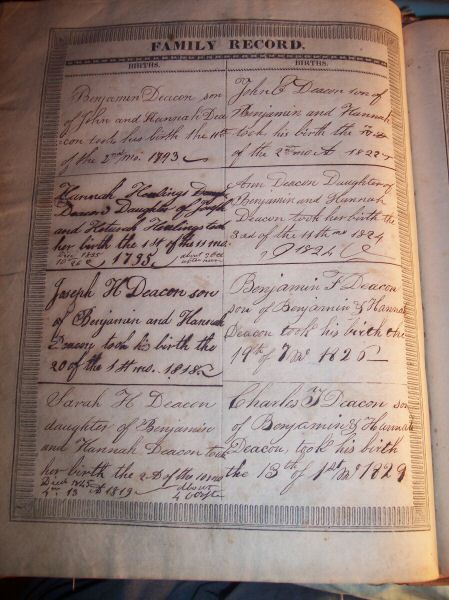 FAMILY RECORD.
BIRTHS.
Benjamin Deacon son
of John and Hannah Dea
con took his birth the 11th
of the 2nd mo. 1793
Hannah Healings
Deacon Daughter of Joseph
and Healings took
her birth the 1st of the 11 mo.
1795
Joseph H Deacon son
of Benjamin and Hannah
Deacon took his birth the
20 of the 1st mo. 1818
Sarah H Deacon
daughter of Benjamin
and Hannah Deacon took
her birth the 2d of the 10 mo
Died 1845
13 1819
about
4 oclock
BIRTHS.
John C Deacon son of
Benjamin and Hannah
took his birth the
of the 2nd mo 1822
Ann Deacon Daughter of
Benjamin and Hannah
Deacon took her birth the
3rd of the 11th mo 1824
1824
Benjamin F Deacon
son of Benjamin & Hannah
Deacon took his birth the
19th of 7 mo 1826
Charles Deacon son
of Benjamin & Hannah
Deacon, took his birth
the 13th of 1st mo 1829